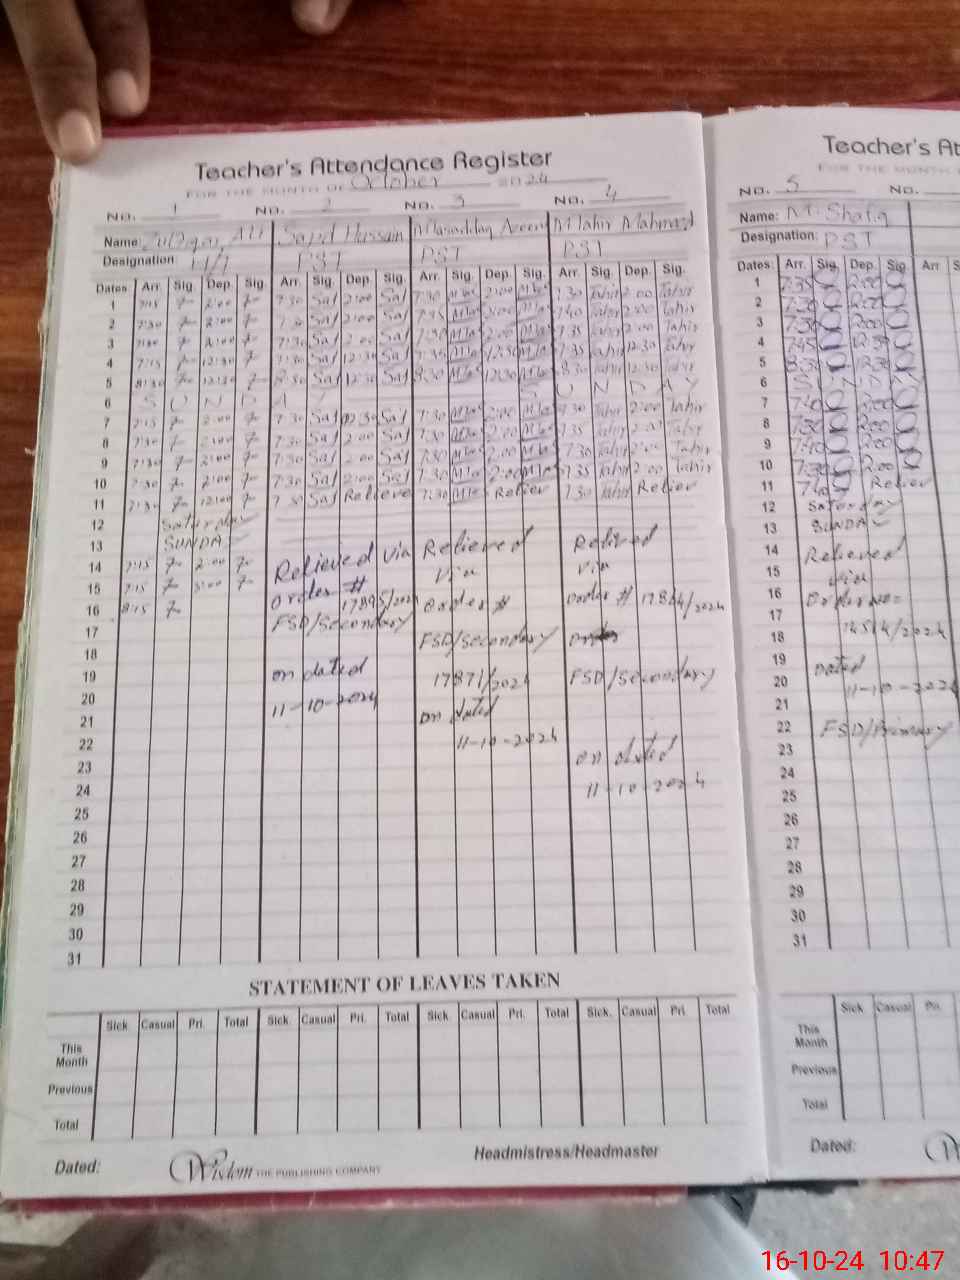 Teacher's Attendance Register
FOR THE MONTH OF October 2024
No. 1 No. 2 No. 3 No. 4
Name: Zulfqar Ali Sajid Hussain Mahir Mahmood
Designation: PST PST PST
Dates Arr. Sig. Dep. Sig. Arr. Sig. Dep. Sig. Arr. Sig. Dep. Sig. Arr. Sig. Dep. Sig.
1 7:15 2:00 7:30 Saj 2:00 Saj 7:30 2:00 7:30 Tahir 2:00 Tahir
2 7:30 2:00 7:30 Saj 2:00 Saj 7:35 2:00 7:40 Tahir 2:00 Tahir
3 7:30 2:00 7:30 Saj 2:00 Saj 7:30 2:00 7:35 Tahir 2:00 Tahir
4 7:15 12:30 7:30 Saj 12:30 Saj 7:35 12:30 7:35 Tahir 12:30 Tahir
5 8:30 12:30 8:30 Saj 12:30 Saj 8:30 12:30 8:30 Tahir 12:30 Tahir
6 S U N D A Y S U N D A Y
7 7:15 2:00 7:30 Saj 2:30 Saj 7:30 2:00 7:30 Tahir 2:00 Tahir
8 7:30 2:00 7:30 Saj 2:00 Saj 7:30 2:00 7:35 Tahir 2:00 Tahir
9 7:30 2:00 7:30 Saj 2:00 Saj 7:30 2:00 7:30 Tahir 2:00 Tahir
10 7:30 2:00 7:30 Saj 2:00 Saj 7:30 2:00 7:35 Tahir 2:00 Tahir
11 7:30 12:00 7:30 Saj Relieve 7:30 Relier 7:30 Tahir Relier
12 Saturday
13 SUNDAY
14 7:15 2:00 Relieved via Relieved Relived
15 7:15 2:00 order # via via
16 8:15 17895/2024 order # order # 17864/2024
17 FSD/Secondary FSD/Secondary
18
19 on dated 17871/2024 FSD/Secondary
20 11-10-2024 on dated
21
22 11-10-2024
23 on dated
24 11-10-2024
25
26
27
28
29
30
31
STATEMENT OF LEAVES TAKEN
Sick Casual Pri. Total Sick. Casual Pri. Total Sick. Casual Pri. Total Sick. Casual Pri. Total
This Month
Previous
Total
Dated: Wisdom THE PUBLISHING COMPANY Headmistress/Headmaster
Teacher's At
FOR THE MONTH
No. 5 No.
Name: M. Shafiq
Designation: PST
Dates: Arr. Sig. Dep. Sig. Arr S
1 7:35 2:00
2 7:30 2:00
3 7:30 2:00
4 7:45 12:30
5 8:30 12:30
6 S U N D A Y
7 7:40 2:00
8 7:30 2:00
9 7:40 2:00
10 7:30 2:00
11 7:40 Relier
12 Saturday
13 SUNDAY
14 Relieved
15 via
16 Order no=
17 14514/2024
18
19 Dated
20 11-10-2024
21
22 FSD/Primary
23
24
25
26
27
28
29
30
31
Sick Casual Pri. Total
This Month
Previous
Total
Dated: W
16-10-24 10:47